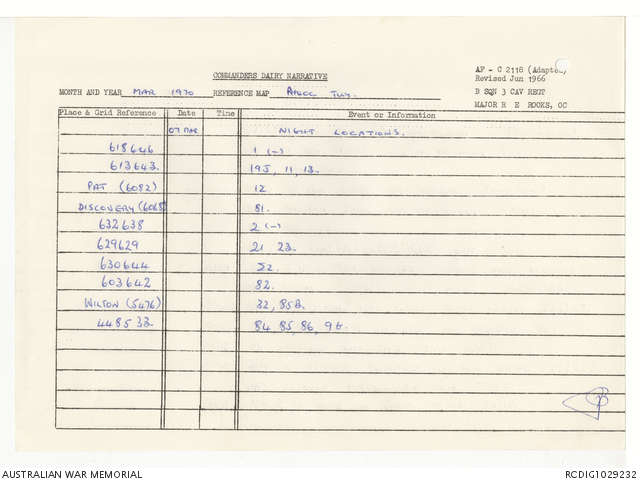 COMMANDERS DAIRY NARRATIVE
AF - C 2118 (Adapted)
Revised Jun 1966
MONTH AND YEAR MAR 1970 REFERENCE MAP
B SQN 3 CAV REGT
MAJOR R E ROOKS, OC
Place & Grid Reference Date Time Event or Information
07 MAR NIGHT LOCATIONS.
618646 1 (-)
613643. 19J, 11, 13.
PAT (6082) 12
DISCOVERY (6068) 81.
632638 2 (-)
629629 21 23.
630644 22.
603642 82.
WILTON (5476) 32, 85B.
448533. 84 85, 86, 9
AUSTRALIAN WAR MEMORIAL
RCDIG1029232